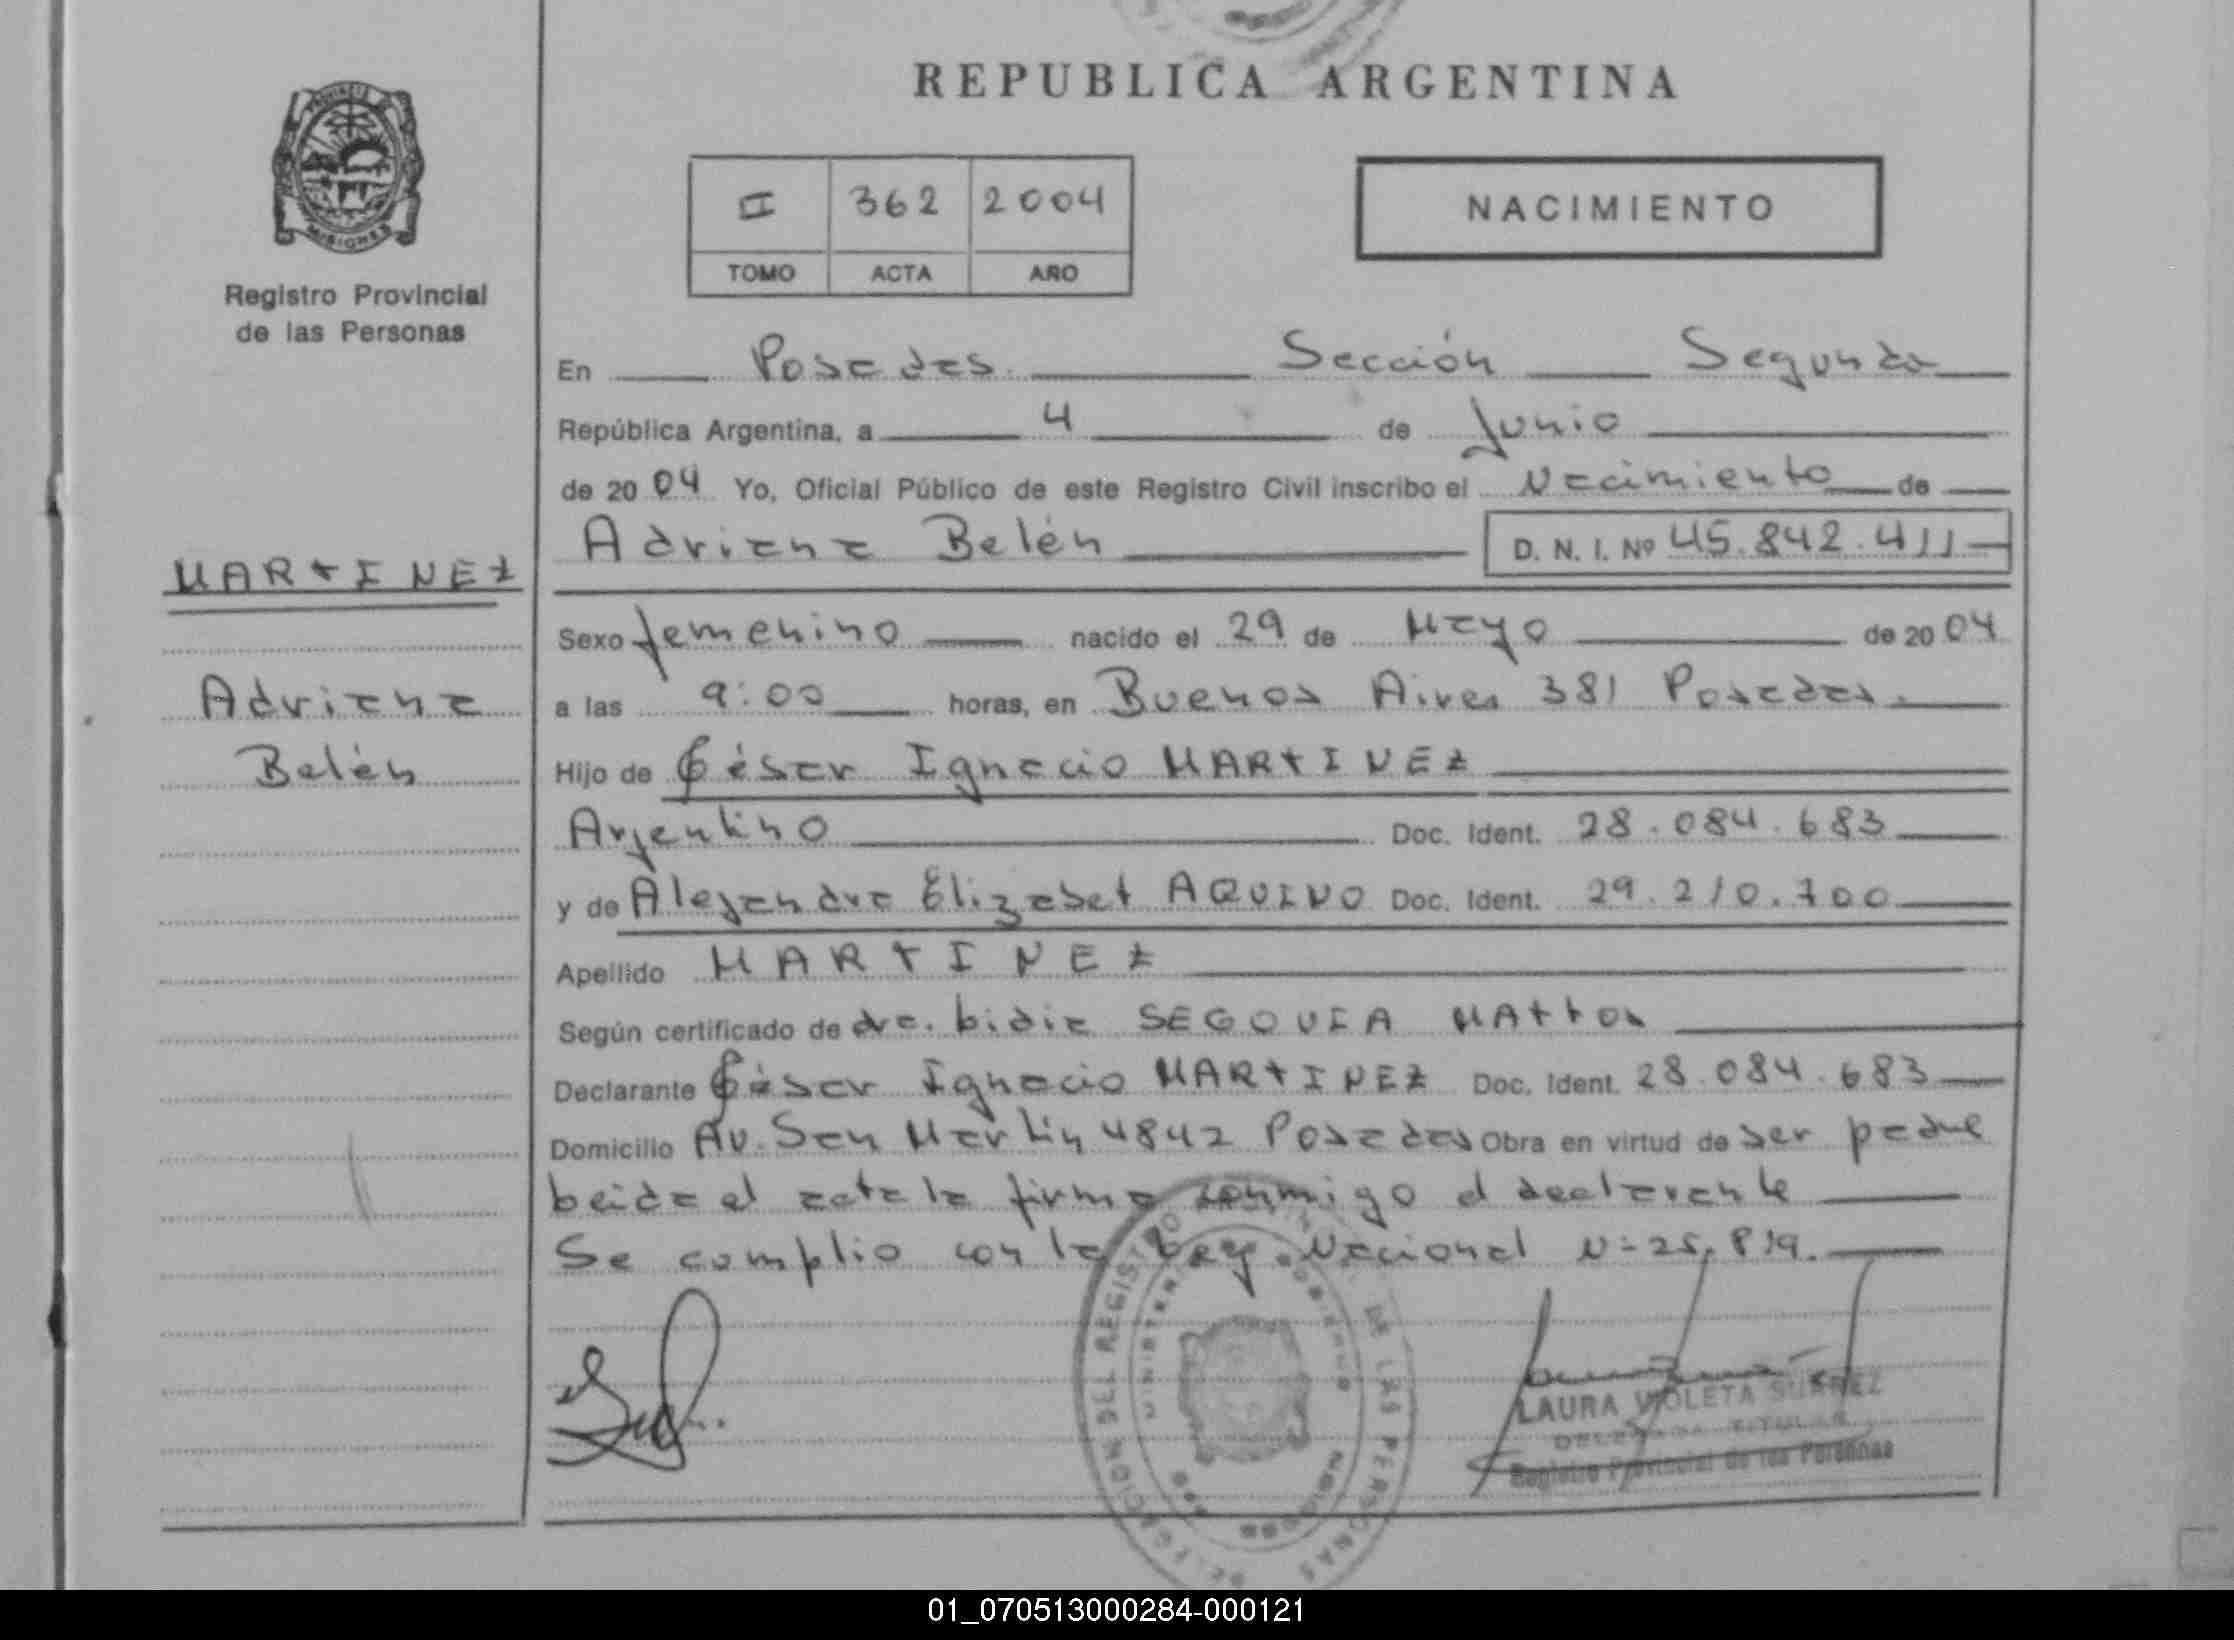 REPUBLICA ARGENTINA
MISIONES
Registro Provincial
de las Personas
II 362 2004
TOMO ACTA AÑO
NACIMIENTO
En Posadas Sección Segunda
República Argentina, a 4 de Junio
de 2004 Yo, Oficial Público de este Registro Civil inscribo el Nacimiento de
Adriana Belén D. N. I. Nº 45.842.411
MARTINEZ
Adriana
Belén
Sexo femenino nacido el 29 de Mayo de 2004
a las 9:00 horas, en Buenos Aires 381 Posadas.
Hijo de César Ignacio MARTINEZ
Argentino Doc. Ident. 28.084.683
y de Alejandra Elizabet AQUINO Doc. Ident. 29.210.700
Apellido MARTINEZ
Según certificado de dra. Lidia SEGOVIA MATTOS
Declarante César Ignacio MARTINEZ Doc. Ident. 28.084.683
Domicilio Av. San Martín 4842 Posadas Obra en virtud de ser padre
Leida el acta la firma conmigo el declarante
Se cumplio con la Ley Nacional N=25.819.
LAURA VIOLETA SUAREZ
DELEGADA TITULAR
Registro Provincial de las Personas
01_070513000284-000121